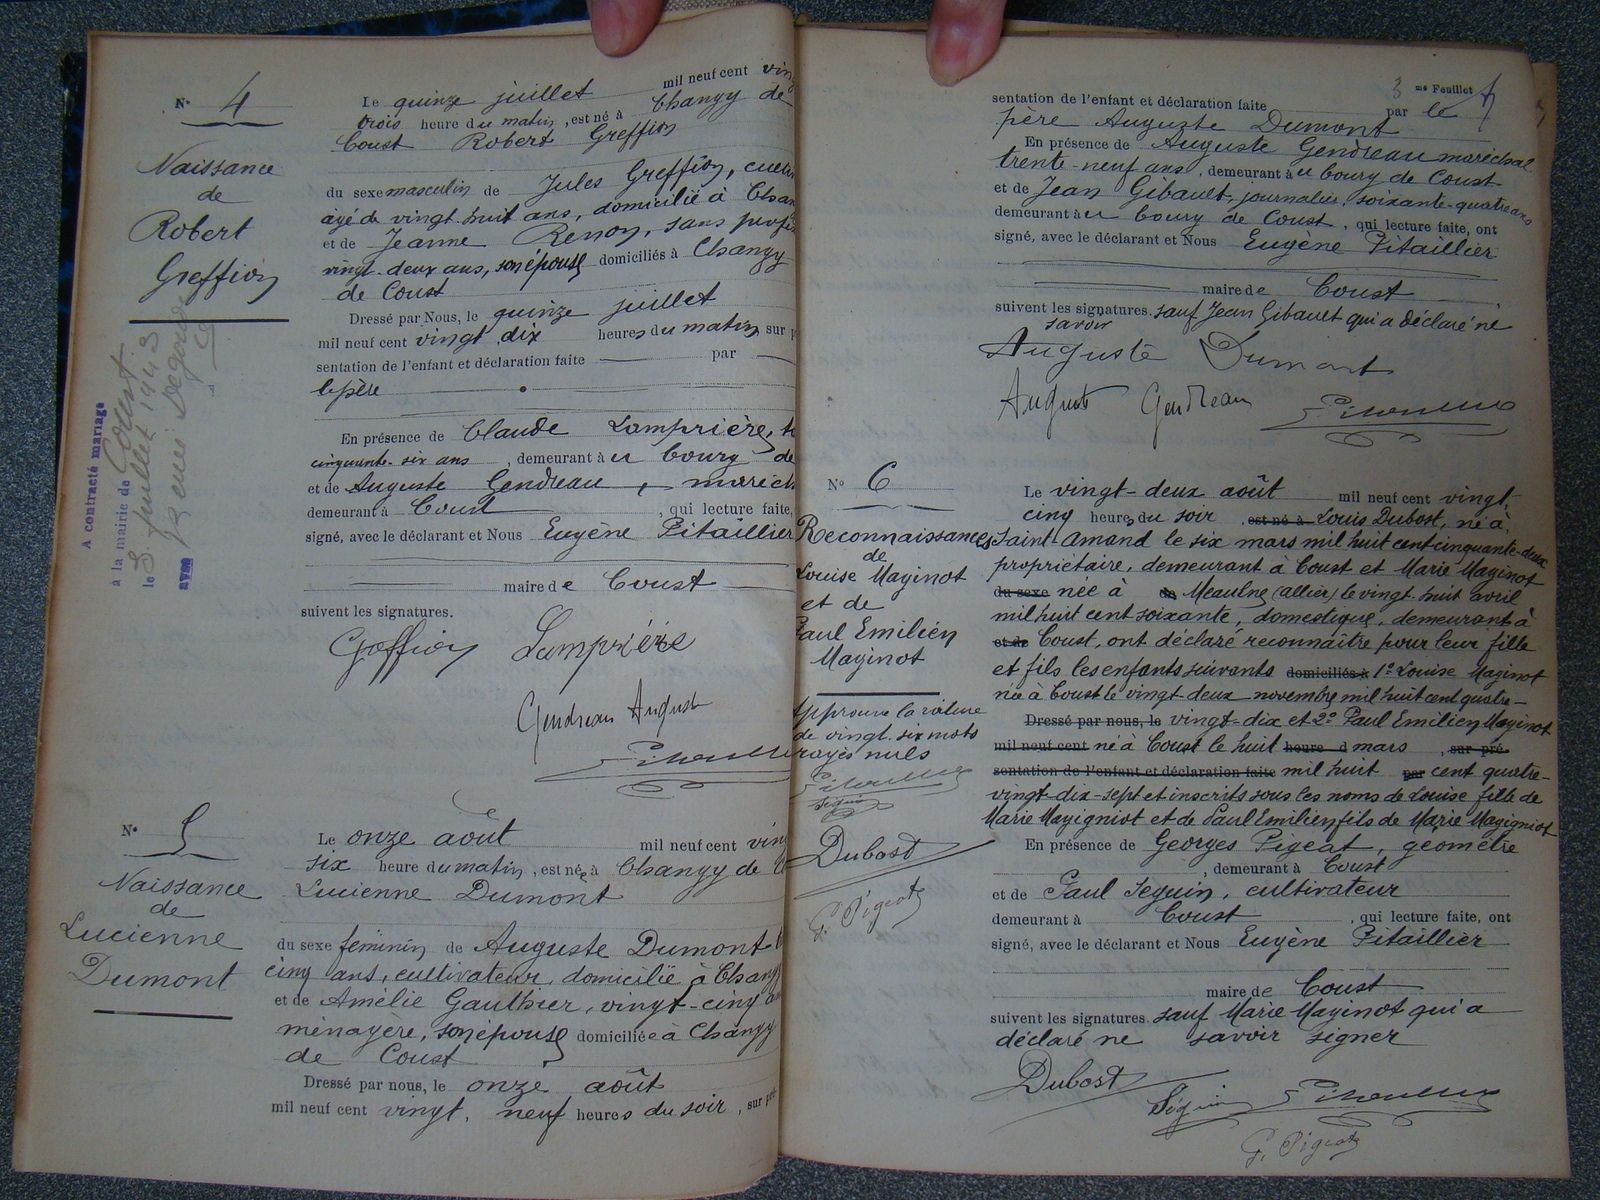 N° 4
Naissance
de
Robert
Greffion
A contracté mariage
à la mairie de Coust
le 3 juillet 1943
avec
Le quinze juillet mil neuf cent vin
trois heure du matin, est né à Changy de
Coust Robert Greffion
du sexe masculin de Jules Greffion,
âgé de vingt-huit ans, domicilié à Chan
et de Jeanne Renon, sans profes
vingt-deux ans, son épouse domiciliés à Changy
de Coust
Dressé par Nous, le quinze juillet
mil neuf cent vingt, dix heures du matin, sur p
sentation de l'enfant et déclaration faite par
le père
En présence de Claude Lamprière,
cinquante-six ans, demeurant au bourg de
et de Auguste Gendreau, maréch
demeurant à Coust, qui lecture faite,
signé, avec le déclarant et Nous Eugène Pitaillier
maire de Coust
suivent les signatures.
Greffion Lamprière
Gendreau Auguste
N° 5
Naissance
de
Lucienne
Dumont
Le onze août mil neuf cent vin
six heure du matin, est née à Changy de Co
Lucienne Dumont
du sexe féminin de Auguste Dumont
cinq ans, cultivateur, domicilié à Chang
et de Amélie Gauthier, vingt-cinq an
ménagère, son épouse domiciliée à Changy
de Coust
Dressé par nous, le onze août
mil neuf cent vingt, neuf heures du soir, sur pré
3 me Feuillet
sentation de l'enfant et déclaration faite par le
père Auguste Dumont
En présence de Auguste Gendreau maréchal
trente-neuf ans, demeurant au bourg de Coust
et de Jean Gibault, journalier, soixante-quatre ans
demeurant au bourg de Coust, qui lecture faite, ont
signé, avec le déclarant et Nous Eugène Pitaillier
maire de Coust
suivent les signatures. sauf Jean Gibault qui a déclaré ne
savoir
Auguste Dumont
Auguste Gendreau
N° 6
Reconnaissances
de
Louise Maginot
et de
Paul Emilien
Maginot
Approuvé la rature
de vingt-six mots
rayés nuls
Seguin
Dubost
G. Pigeat
Le vingt-deux août mil neuf cent vingt,
cinq heures du soir, est né à Louis Dubost, né à
Saint-Amand le six mars mil huit cent cinquante-deux
propriétaire, demeurant à Coust et Marie Maginot
du sexe née à de Meaulne (allier) le vingt-huit avril
mil huit cent soixante, domestique, demeurant à
et de Coust, ont déclaré reconnaître pour leur fille
et fils les enfants suivants domiciliés à 1° Louise Maginot
née à Coust le vingt-deux novembre mil huit cent quatre-
Dressé par nous, le vingt-dix et 2° Paul Emilien Maginot
mil neuf cent né à Coust le huit heure d mars, sur pré-
sentation de l'enfant et déclaration faite mil huit par cent quatre-
vingt-dix-sept et inscrits sous les noms de Louise fille de
Marie Mayigniot et de Paul Emilien fils de Marie Magigniot
En présence de Georges Pigeat, géomètre
, demeurant à Coust
et de Paul Seguin, cultivateur
demeurant à Coust, qui lecture faite, ont
signé, avec le déclarant et Nous Eugène Pitaillier
maire de Coust
suivent les signatures. sauf Marie Maginot qui a
déclaré ne savoir signer
Dubost
Séguin
G. Pigeat